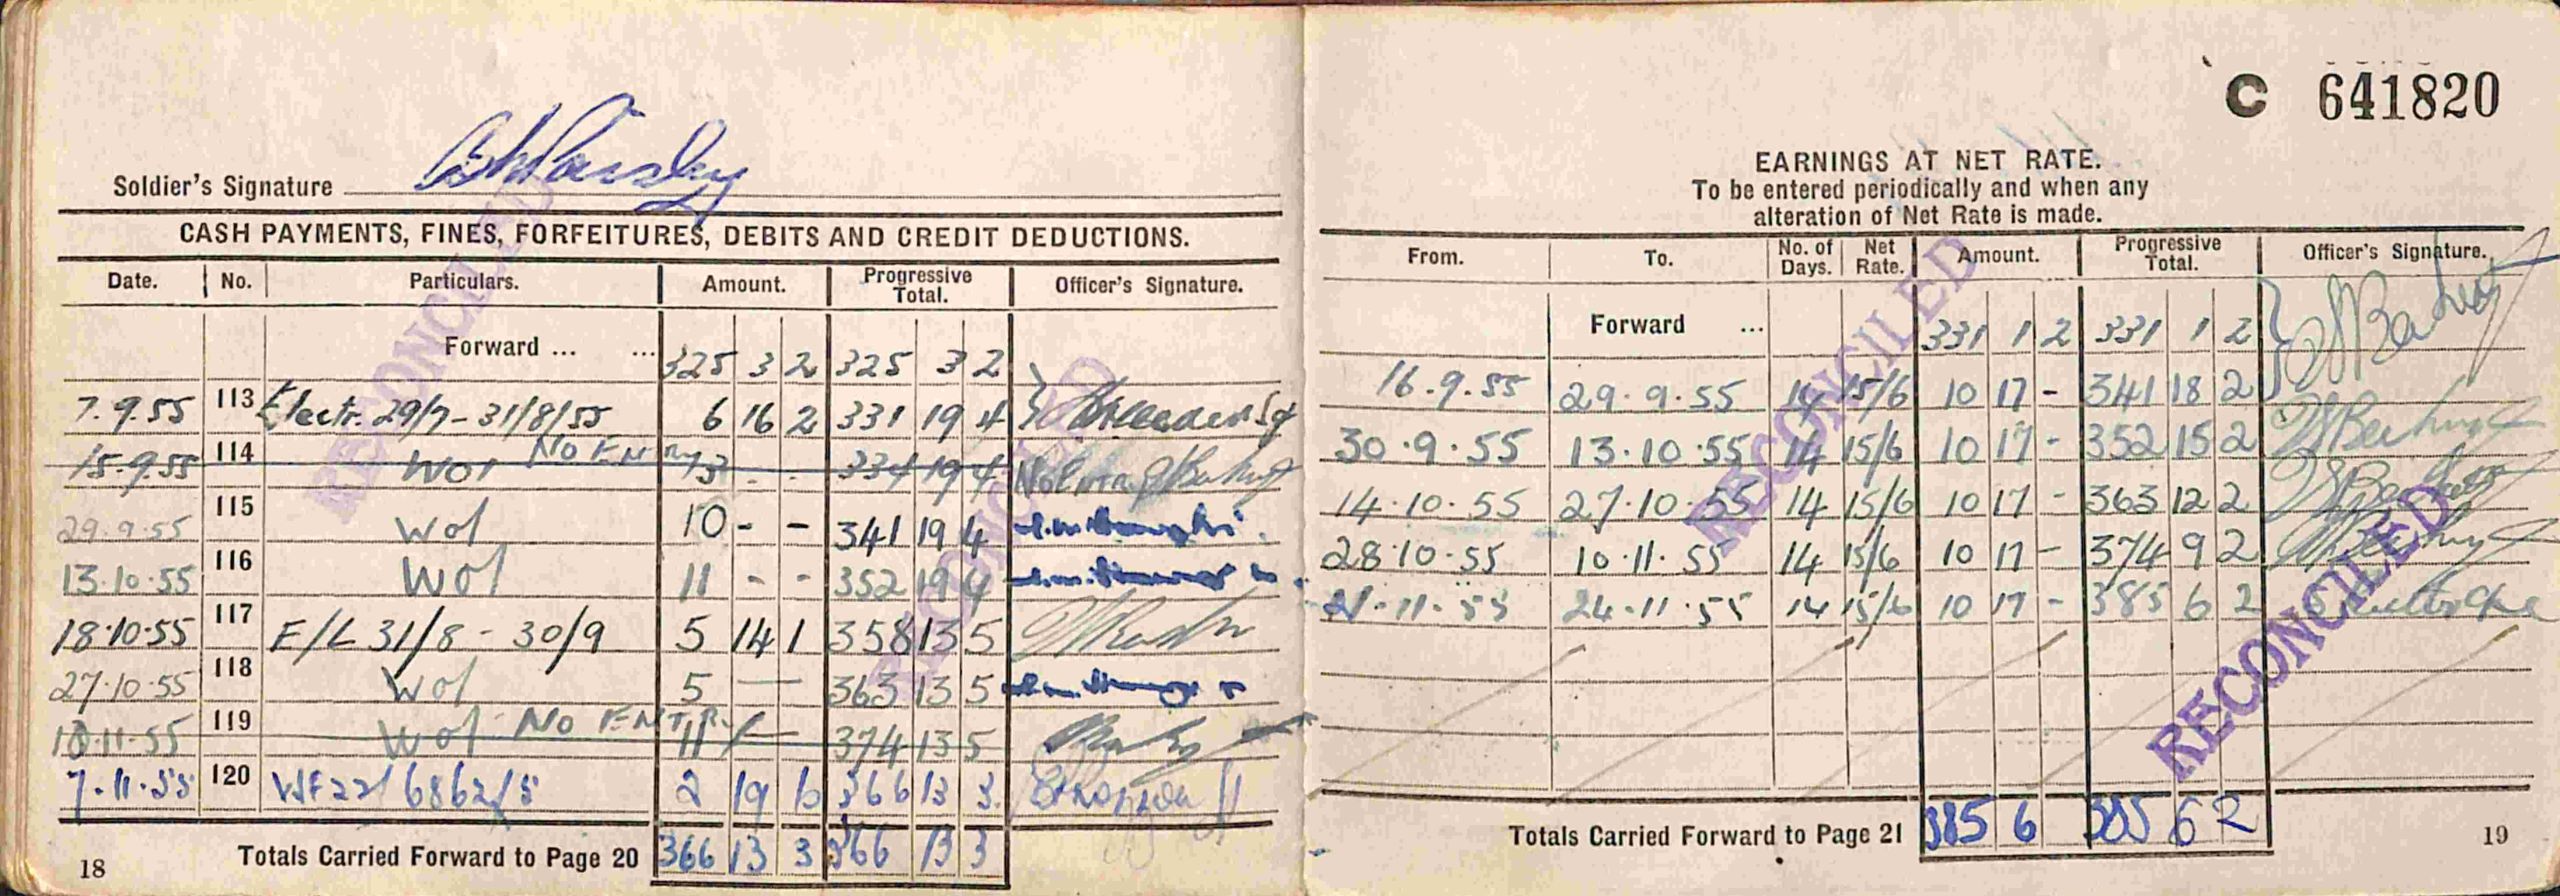 C 641820
Soldier's Signature
CASH PAYMENTS, FINES, FORFEITURES, DEBITS AND CREDIT DEDUCTIONS.
Date. No. Particulars. Amount. Progressive Total. Officer's Signature.
Forward ... ... 325 3 2 325 3 2
7.9.55 113 Electr. 29/7 - 31/8/55 6 16 2 331 19 4
15.9.55 114 Wol No ENTRY 3 - - 334 19 4 No Entry
29.9.55 115 Wol 10 - - 341 19 4
13.10.55 116 Wol 11 - - 352 19 4
18.10.55 117 E/L 31/8 - 30/9 5 14 1 358 13 5
27.10.55 118 Wol 5 — 363 13 5
10.11.55 119 Wol - No ENTRY 11 — 374 13 5
7.11.55 120 6862/5 2 19 366 13 3
Totals Carried Forward to Page 20 366 13 3 366 13 3
18
RECONCILED
RECONCILED
EARNINGS AT NET RATE.
To be entered periodically and when any
alteration of Net Rate is made.
From. To. No. of Days. Net Rate. Amount. Progressive Total. Officer's Signature.
Forward ... 331 1 2 331 1 2
16.9.55 29.9.55 14 15/6 10 17 - 341 18 2
30.9.55 13.10.55 14 15/6 10 17 - 352 15 2
14.10.55 27.10.55 14 15/6 10 17 - 363 12 2
28.10.55 10.11.55 14 15/6 10 17 - 374 9 2
11.55 24.11.55 14 15/6 10 17 - 385 6 2
Totals Carried Forward to Page 21 385 6 385 6 2
19
RECONCILED
RECONCILED